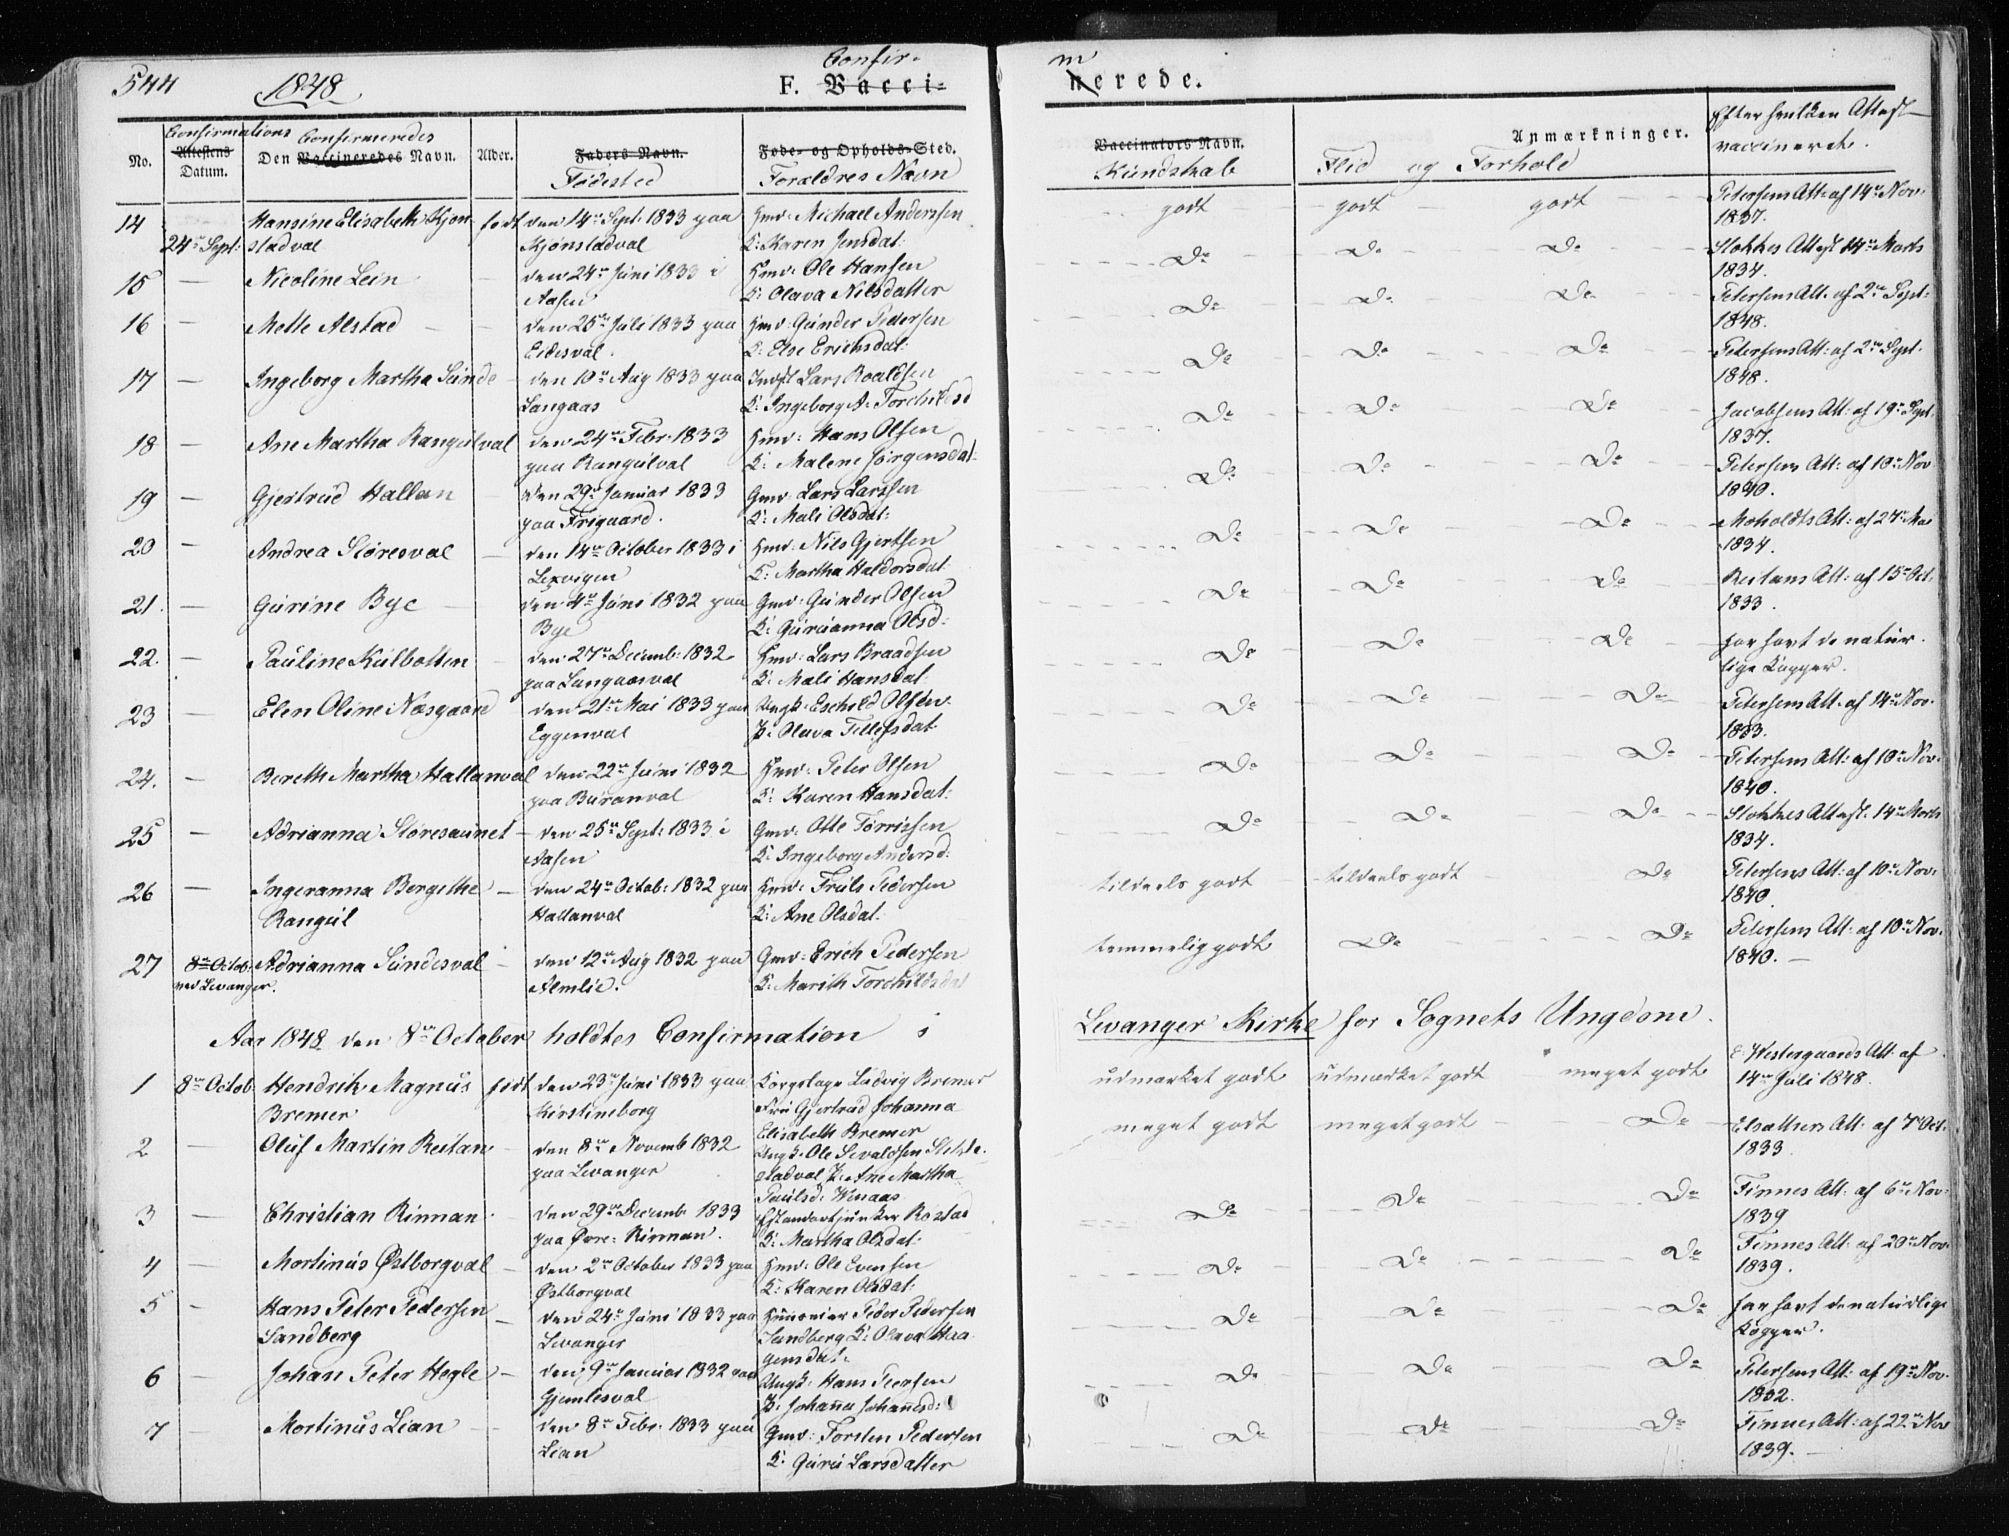 544 1848 Confir- m
F. Vacci= nerede.
Confirmations Confirmeredes Efter hvilken Attest
No. Attestens Datum. Den Vaccineredes Navn. Alder. Faders Navn. Føde- og Opholds-Sted. Vaccinators Navn. Anmærkninger. vaccinerede.
Fødested Forældres Navn Kundskab Flid og Forhold
14 Hansine Elisabeth Kjøn- født den 14de Sept: 1833 paa Hmd: Michael Anderssen godt godt godt Petersens Att: af 14de Nov:
24de Sept: stadval Kjønstadval K: Karen Jensdat: 1837.
15 — Nicoline Lein — den 24de Juni 1833 i Hmd: Ole Hansen Do Do Do Stokkes Attest 14de Marts
Aasen K: Olava Nilsdatter 1834.
16 — Mette Alstad — den 25de Juli 1833 paa Hmd: Gunder Pedersen Do Do Do Petersens Att. af 2de Sept:
Eidesval. K: Else Erichsdat: 1848.
17 — Ingeborg Martha Sunde — den 10de Aug 1833 paa Indst Lars Roaldsen Do Do Do Petersens Att: af 2de Sept.
Langaas K: Ingeborg A. Torchilsd 1848.
18 — Ane Martha Rangulval den 24de Febr: 1833 Hmd: Hans Olsen Do Do Do Jacobsens Att: af 19de Sept.
paa Rangulval K: Malene Jørgensdat: 1837.
19 — Gjertrud Hallan — den 29de Januar 1833 Gmd: Lars Larssen Do Do Do Petersens Att: af 10de Nov
paa Frigaard. K: Mali Olsdat: 1840.
20 — Andrea Støresval — den 14de October 1833 i Hmd: Nils Gjertsen Do Do Do Moholdts Att: af 27de Mai
Lexvigen K: Martha Haldorsdat 1834.
21. — Gurine Bye — den 4de Juni 1832 paa Gmd: Gunder Olsen Do Do Do Reitans Att: af 15de Oct.
Bye K: Guruanna Olsd: 1833.
22. — Pauline Kulbotten — den 27de Decemb: 1832 Hmd: Lars Braadsen Do Do Do har havt de natur-
paa Langaasval K: Mali Hansdat. lige Kopper.
23 — Elen Oline Næsgaard — den 21de Mai 1833 paa Ungk: Eschild Olsen Do Do Do Petersens Att. af 14de Nov.
Eggenval P: Olava Tellefsdat 1833.
24. — Bereth Martha Hallanval den 22de Juni 1832 Hmd: Peter Olsen Do Do Do Petersens Att: af 10de Nov:
paa Buranval K: Karen Hansdat: 1840.
25 — Adrianna Støresaunet — den 25de Sept: 1833 i Gmd: Otte Torrissen Do Do Do Stokkes Attest. 14de Marts
Aasen K: Ingeborg Andersd: 1834.
26 — Ingeranna Bergithe — den 24de Octob: 1832 paa Hmd: Truls Pedersen tildeels godt tildeels godt Do Petersens Att: af 10de Nov:
Rangul Hallanval K: Ane Olsdat. 1840.
27 8de Octob: Adrianna Sundesval — den 12de Aug 1832 paa Gmd: Erich Pedersen temmelig godt Do Do Petersens Att: af 10de Nov.
ved Levanger. Almlie. K: Marith Torchildsdat 1840. —
Aar 1848 den 8de October holdtes Confirmation i Levanger Kirke for Sognets Ungdom.
1 8de Octob: Hendrik Magnus født den 23de Juni 1833 paa Ludvig Bremer udmærket godt udmærket godt meget godt Westergaards Att. af
Bremer Kirstineborg Fru Gjertrud Johanna 14de Juli 1848.
Elisabeth Bremer
2 — Oluf Martin Reitan — den 8de Novemb 1832 Ungk: Ole Sevaldsen meget godt meget godt Do Att. af 7de Oct.
paa Levanger stadval, P: Ane Martha 1833.
Paulsd:
3 — Christian Rinnan. den 29de Decemb 1833 Rostad Do Do Do Finnes Att: af 6de Nov:
paa Øvre-Rinnan. K: Martha Olsdat: 1839
4 — Mortinus Østborgval — den 2de October 1833 paa Hmd: Ole Evensen Do Do Do Finnes Att. af 20de Nov.
Østborgval K: Karen Olsdat. 1839.
5 — Hans Peter Pedersen — den 24de Juni 1833 paa Peder Pedersen Do Do Do har havt de naturlige
Sandberg Levanger Sandberg K: Olava Haa- Kopper.
gensdat.
6 — Johan Peter Hegle — den 9de Januar 1832 paa Ungk: Hans Peersen Do Do Do Petersens Att: af 19de Nov.
Gjemlesval P: Johanna Johannesd: 1832.
7 — Mortinus Lian — den 8de Febr: 1833 paa Gmd: Torsten Pedersen Do Do Do Finnes Att: af 22de Nov
Lian K: Guru Larsdatter 1839. —